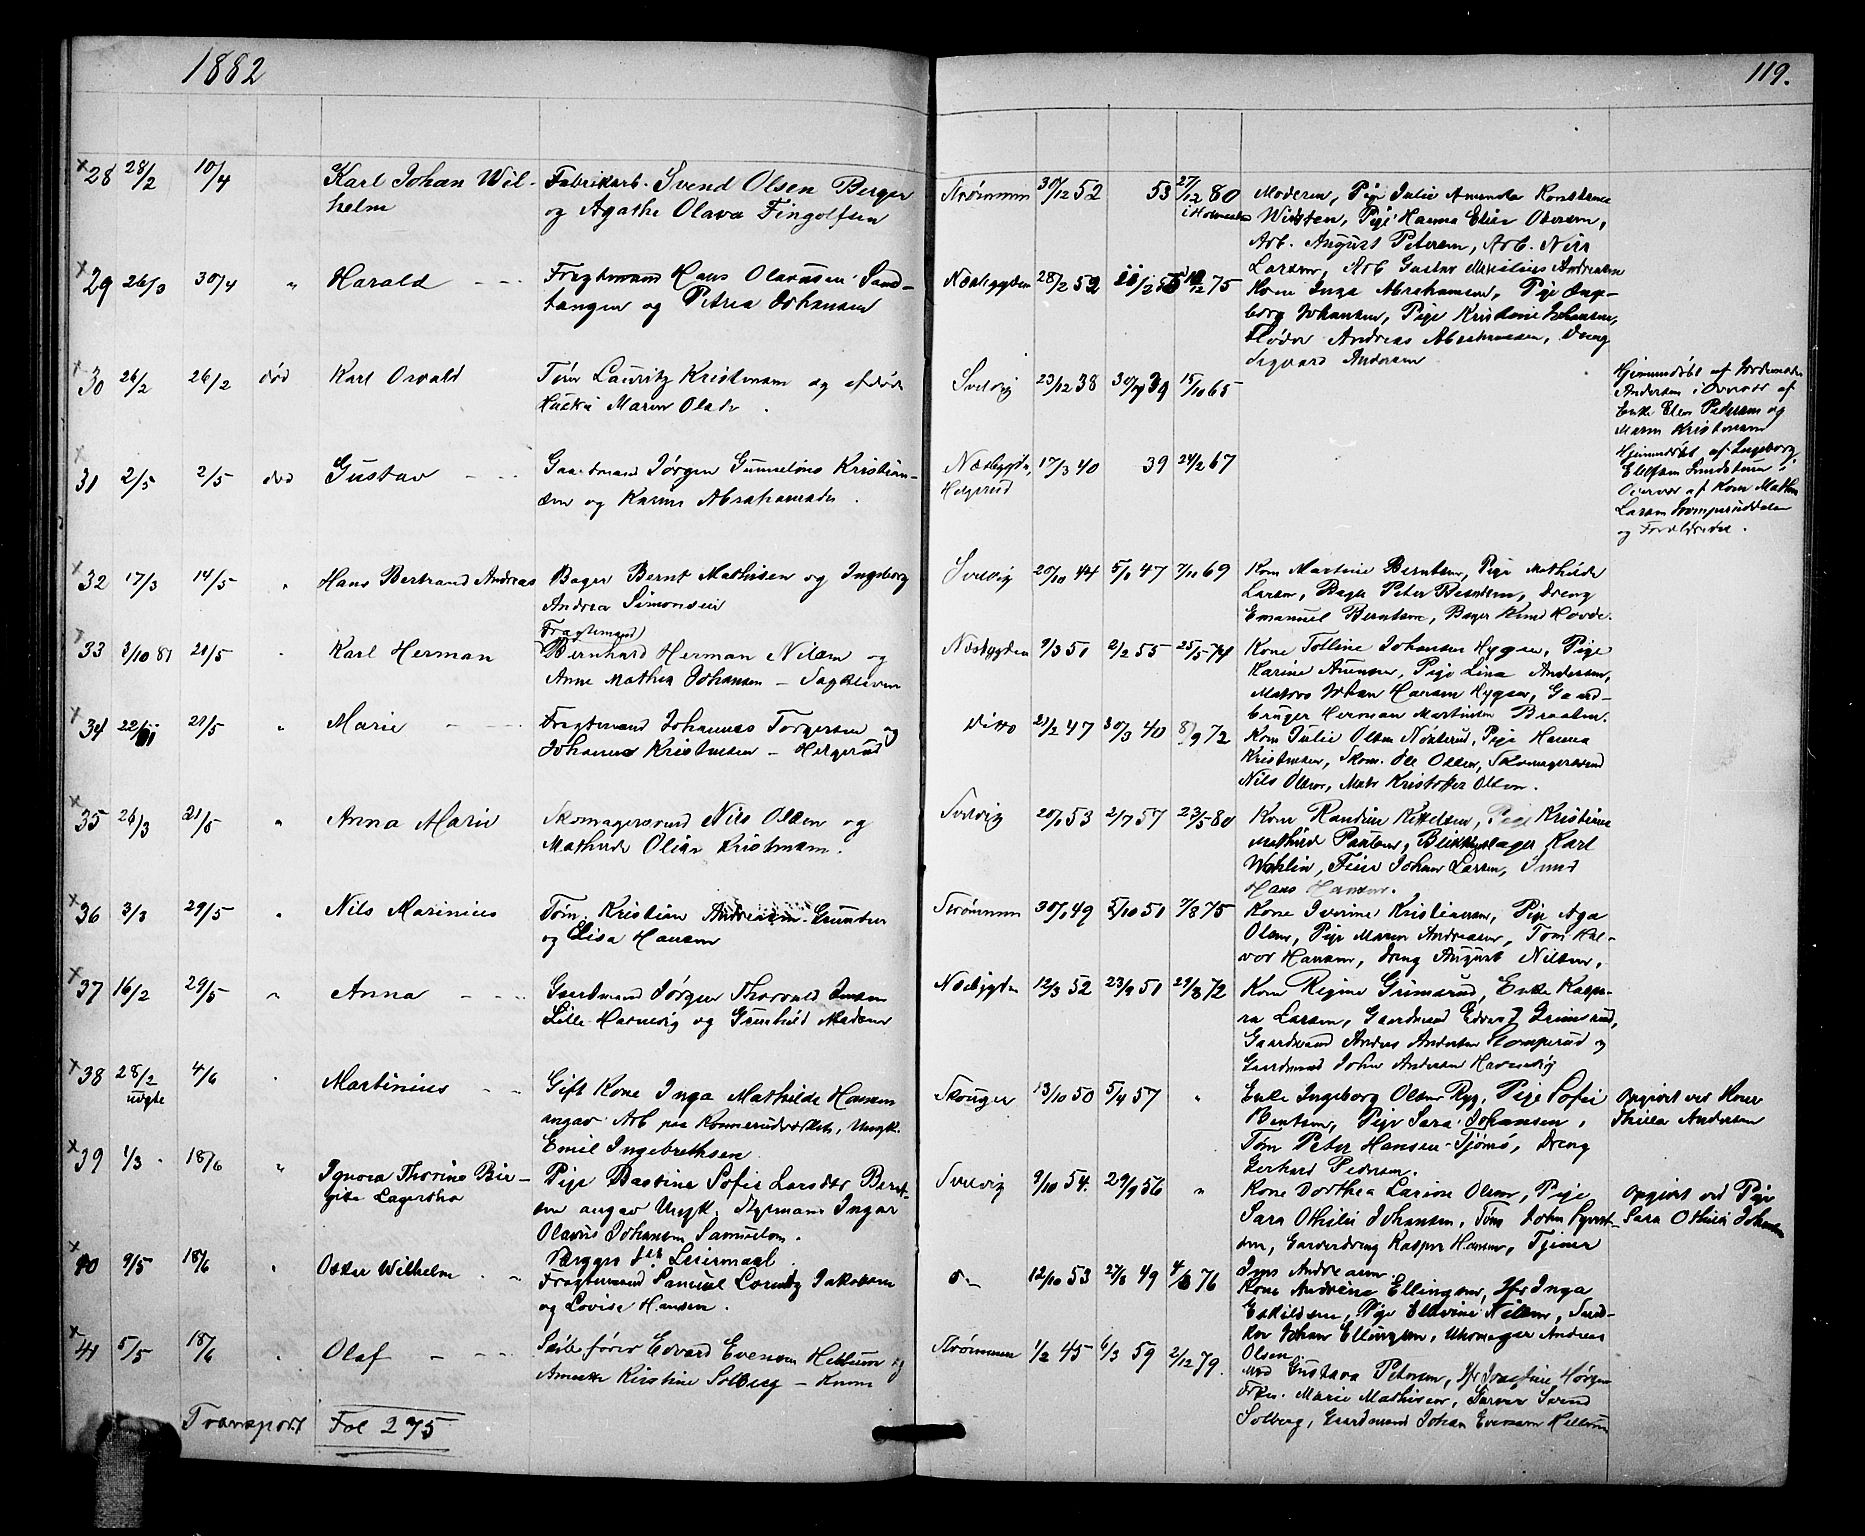 1882
119.
28 28/2 10/4 Karl Johan Wil-
helm
Fabrikarb. Svend Olsen Berger
og Agathe Olava Fingolfsen
Strømmen 30/12 52 53 27/12 80
Moderen, Pige Julie Amunda Konstanse
Arb. August Petersen, Arb. Nils
Larsen, Arb Gustav Andreasen
29 26/3 30/4 " Harald - - -
Fragtmand Hans Olavesen Sand-
tangen og Petrea Johansen
Nesbygden 28/2 52 75
Kone Inga Abrahamsen, Pige Inge-
borg Johansen, Pige Kristine Johansen,
Andreas Abrahamsen, Dreng
Sigvard Andersen
30 26/2 26/2 død Karl Osvald
Tøm Lauritz Kristensen og afdøde
Maren Olsdr.
Svelvig 23/12 38 39 15/10 65
Hjemmedøbt af
Andersen i Overvær af
Enke Elen Pedersen og
Maren Kristensen
31 2/5 2/5 død Gustav - - -
Gaardmand Jørgen Gunnelius Kristian-
sen og Karine Abrahamsdtr.
Nesbygden, 17/3 40 39 24/2 67
Helgerud
Hjemmedøbt af Ingeborg
Ellefsen i
Overvær af Kone Mathea
Larsen
og Forældrene.
32 17/3 14/5 " Hans Bertrand Andreas
Bager Bernt Mathisen og Ingeborg
Andrea Simonsen
Svelvig 20/10 44 5/1 47 7/11 69
Kone Martine Berntsen, Pige Mathilde
Larsen, Bager Peter Berntsen, Dreng
Emanuel Berntsen, Bager Knud Hovde.
33 3/10 81 21/5 " Karl Herman
Fragtemand
Bernhard Herman Nilsen og
Anne Mathea Johansen - Sagkleven
Nesbygden 9/3 51 2/2 55 25/5 74
Kone Tolline Johansen Hygen, Pige
Karine Arnesen, Pige Lina Andersen,
Matros Johan Hansen Hygen, Gaard-
bruger Herman Martinsen Braaten.
34 21/5 " Marie - - -
Fragtemand Johannes Torgersen og
Johanne Kristensen - Helgerud
Ditto 21/2 47 30/3 40 8/9 72
Kone Julie Olsen Nøsterud, Pige Hanna
Kristensen, Skom. Ole Olsen, Skomagersvend
Nils Olsen, Mats Kristoffer Olsen.
35 26/3 21/5 " Anna Marie
Skomagersvend Nils Olsen og
Mathilde Olise Kristensen.
Svelvig 53 2/7 57 23/5 80
Kone Randine Kittelsen, Pige Kristine
Mathilde Paulsen, Blikkenslager Karl
Wahlin, Feier Johan Larsen, Svend
Hans Hansen.
36 3/3 29/5 " Nils Marinius
Tøm. Kristian Andreasen
og Elisa Hansen
Strømmen 49 5/10 51 7/8 75
Kone Iverine Kristiansen, Pige Aga
Olsen, Pige Maren Andreasen, Tøm Hal-
vor Hansen, Dreng August Nilsen,
37 16/2 29/5 " Anna - - -
Gaardmand Jørgen Thorvald Jensen
Lille Havnevig og Gunhild Madsen
Nesbygden 12/3 52 23/9 51 29/3 72
Kone Regine Grimsrud, Enke Kaspa-
ra Larsen, Gaardmand Edvard Grimsrud,
Gaardmand Anders Andersen Stomperud og
Gaardmand Johan Andersen Havnevig
38 28/2 4/6 " Martinius - -
uægte
Gift Kone Inga Mathilde Hansen
angav Arb paa Konnerudværket, Ungk.
Emil Ingebrethsen
Skouger 13/10 50 5/4 57 "
Enke Ingeborg Olsen Ryg, Pige Sofie
Bentsen, Pige Sara Johansen,
Tøm Peter Hansen Tjømø, Dreng
Gerhard Pedersen.
Opgivet ved Kone
Thilla Andersen
39 1/3 18/6 " Ignora Thorine Bir-
gite Lagertha
Pige Bastine Sofie Larsdtr Bernt-
sen angav Ungk. Styrmand Ingar
Olavus Johansen Samuelsen.
Værgers for Leiermaal.
Svelvig 9/10 54. 29/9 56 "
Kone Dorthea Larine Olsen, Pige
Sara Othilie Johansen, Tøm John Syvert-
sen, Garverdreng Kasper Hansen, Tjener
Jens Andreasen.
Opgivet ved Pige
Sara Othilie Johansen
40 9/5 18/6 " Oskar Wilhelm - "
Fragtemand Samuel Lorentz Jakobsen
og Lovise Hansen.
12/10 53 27/8 49 4/3 76
Kone Andrine Ellingsen, Jfr Inga
Eskildsen, Pige Ellevine Nilsen,
Johan Ellingsen, Uhrmager Andreas
Olsen.
41 5/5 18/6 " Olaf - - -
Skibsfører Edvard Evensen Hellum og
Annette Kirstine Solberg - Knem
Strømmen 1/2 45 6/3 59 2/12 79.
Mad Gustava Petersen, Jfr Josefine Hørgen
Frkn. Marie Mathisen, Garver Svend
Solberg, Gaardmand Johan Evensen Hellum
Transport Fol 275